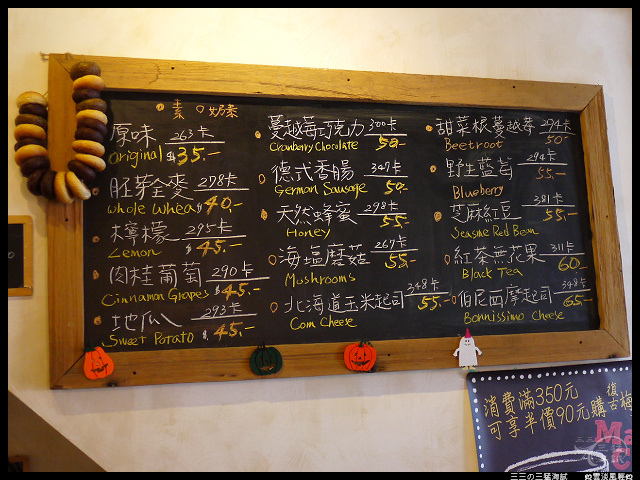 素 奶素
原味 263卡
Original $35.-
胚芽全麥 278卡
Whole Wheat $40.-
檸檬 295卡
Lemon $45.-
肉桂葡萄 290卡
Cinnamon Grapes $45.-
地瓜 293卡
Sweet Potato $45.-
蔓越莓巧克力 300卡
Cranberry Chocolate 50.-
德式香腸 347卡
German Sausage 50.-
天然蜂蜜 298卡
Honey 55.-
海塩蘑菇 269卡
Mushrooms 55.-
北海道玉米起司 348卡
Corn Cheese 55.-
甜菜根蔓越莓 294卡
Beetroot 50.-
野生藍莓 294卡
Blueberry 55.-
芝麻紅豆 381卡
Seasme Red Bean 55.-
紅茶無花果 311卡
Black Tea 60.-
伯尼西摩起司 348卡
Bonnissimo Cheese 65.-
消費滿350元
可享半價90元購
復古梅
三三の三猛海賊
雲淡風輕